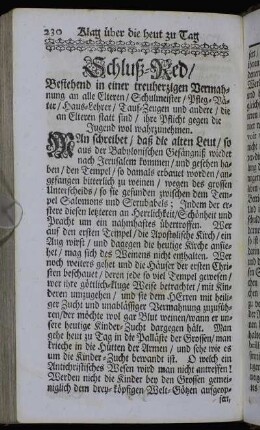 230 Klag über die heut zu Tag
Schluß-Red/
Bestehend in einer treuhertzigen Vermah-
nung an alle Elteren/ Schulmeister/ Pfleg-Vä-
ter/ Haus-Lehrer/ Tauf-Zeugen und andere/ die
an Elteren statt sind/ ihre Pflicht gegen die
Jugend wol wahrzunehmen.
MAn schreibet/ daß die alten Leut/ so
aus der Babylonischen Gefängniß wieder
nach Jerusalem kommen/ und gesehen ha-
ben/ den Tempel/ so damals erbauet worden/ an-
gefangen bitterlich zu weinen/ wegen des grossen
Unterscheids/ so sie gefunden zwischen dem Tem-
pel Salomons und Serubabels: Indem der er-
stere diesen letzteren an Herrlichkeit/ Schönheit und
Pracht um ein nahmhaftes übertroffen. Wer
auf den ersten Tempel/ die Apostolische Kirch/ ein
Aug wirft/ und dagegen die heutige Kirche ansie-
het/ mag sich des Weinens nicht enthalten. Wer
noch weiters gehet und die Häuser der ersten Chri-
sten beschauet/ deren jede so viel Tempel gewesen/
wer ihre göttlich-kluge Weise betrachtet/ mit Kin-
deren umzugehen/ und sie dem HErren mit heili-
ger Zucht und unabläßiger Vermahnung zuzufüh-
ren/ der möchte wol gar Blut weinen/ wann er un-
sere heutige Kinder-Zucht dargegen hält. Man
gehe heut zu Tag in die Palläste der Grossen/ man
krieche in die Hütten der Armen/ und sehe wie es
um die Kinder-Zucht bewandt ist. O welch ein
Antichristisches Wesen wird man nicht antreffen!
Werden nicht die Kinder bey den Grossen gemei-
niglich dem drey-köpfigen Welt-Götzen aufgeop-
fert,